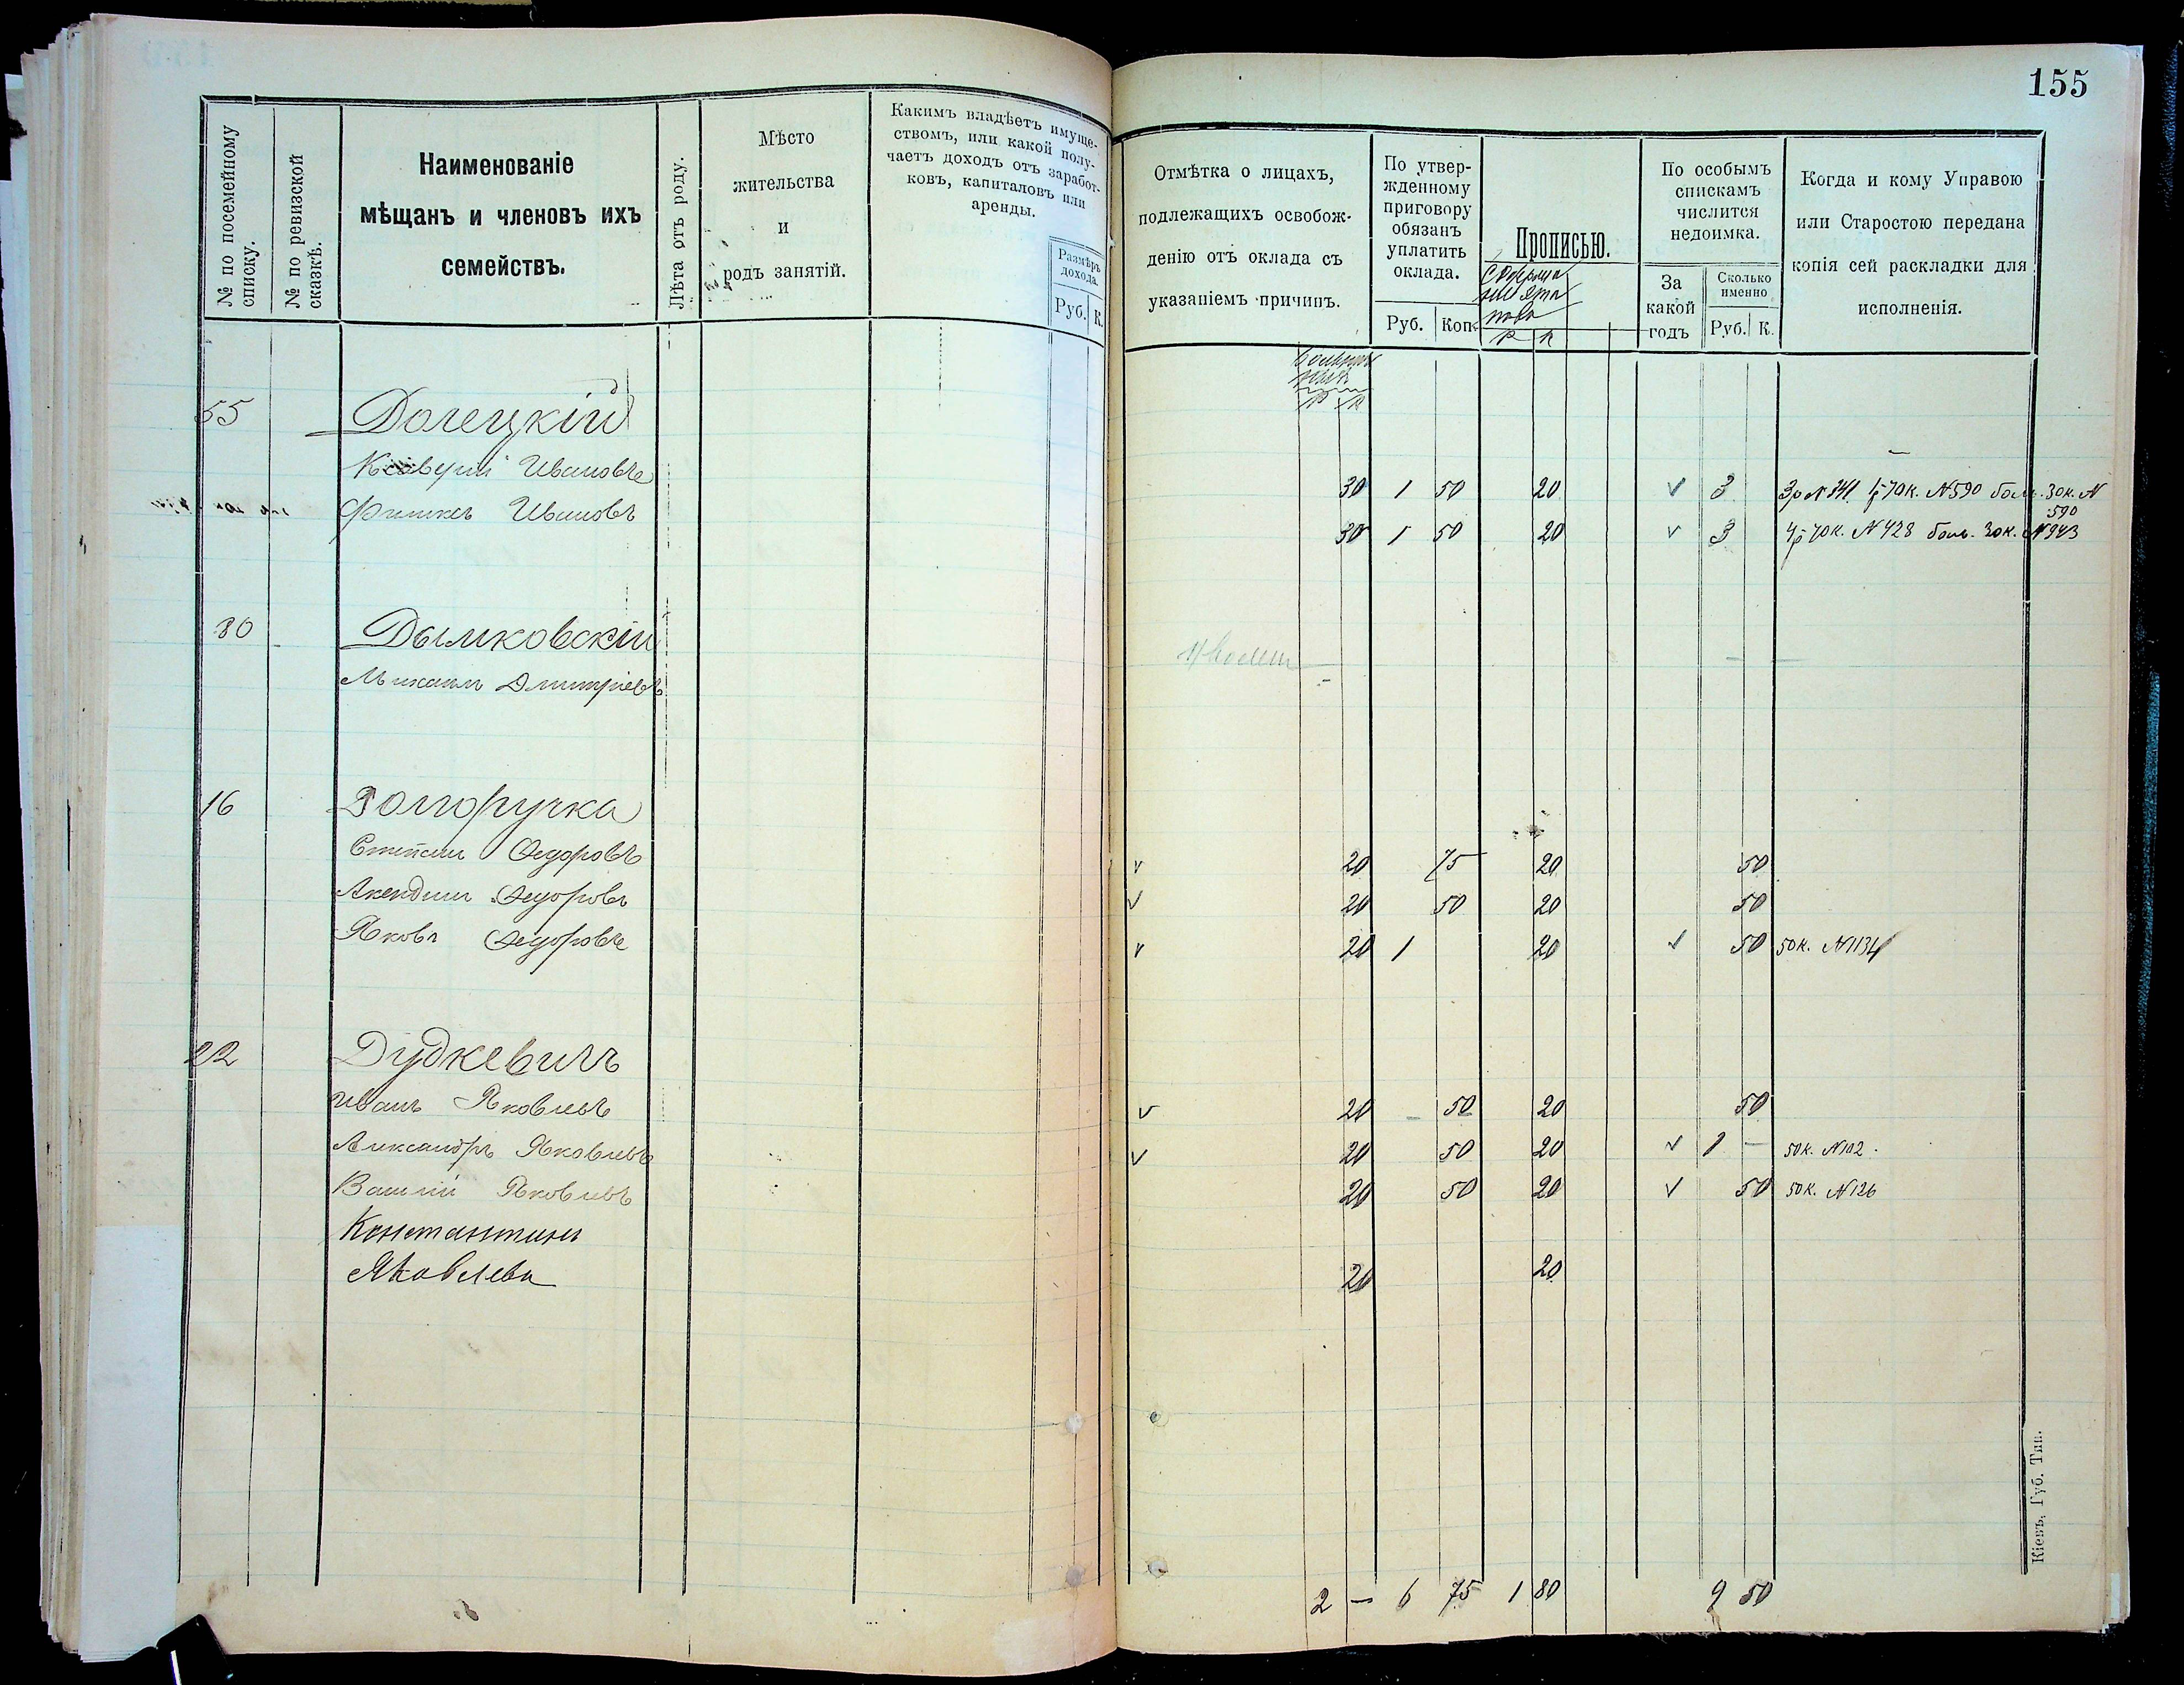 155
№ по посемейному
списку.
№ по ревизской
сказкѣ.
Наименованіе
мѣщанъ и членовъ ихъ
семействъ.
Лѣта отъ роду.
Мѣсто
жительства
и
родъ занятій.
Какимъ владѣетъ имуще-
ствомъ, или какой полу-
чаетъ доходъ отъ заработ-
ковъ, капиталовъ или
аренды.
Размѣръ
дохода.
Руб. К.
Отмѣтка о лицахъ,
подлежащихъ освобож-
денію отъ оклада съ
указаніемъ причинъ.
По утвер-
жденному
приговору
обязанъ
уплатить
оклада.
Руб. Коп.
Прописью.
Р К
По особымъ
спискамъ
числится
недоимка.
За
какой
годъ
Сколько
именно
Руб. К.
Когда и кому Управою
или Старостою передана
копія сей раскладки для
исполненія.
Р К
55 Долецкій
Ксаверій Ивановъ 30 1 50 20 v 3 3р N 341 1р 70к. N590 бол. 30к. N
590
Ивановъ 30 1 50 20 v 3 4р 70к. N 428 боль. 30к. N943
80 Дымковскій
Михаилъ Дмитріевъ
16 Долгоручка
Степанъ Федоровъ v 20 75 20 50
Федоровъ v 20 50 20 50
Яковъ Федоровъ v 20 1 20 v 50 50к. N1134
22 Дудкевичъ
Иванъ Яковлевъ v 20 — 50 20 50
Александръ Яковлевъ v 20 50 20 v 1 — 50к. N102.
Василій Яковлевъ 20 50 20 v 50 50к. N126
Константинъ
Яковлевъ 20 20
2 — 6 75 1 80 9 50
Кіевъ, Губ. Тип.